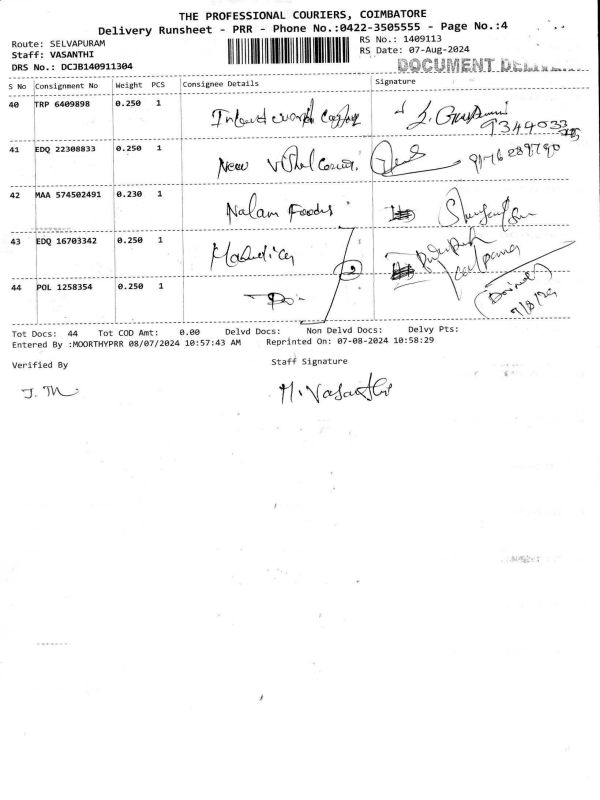 THE PROFESSIONAL COURIERS, COIMBATORE
Delivery Runsheet - PRR - Phone No.:0422-3505555 - Page No.:4
Route: SELVAPURAM
RS No.: 1409113
Staff: VASANTHI
RS Date: 07-Aug-2024
DRS No.: DCJB140911304
DOCUMENT
S No Consignment No Weight PCS Consignee Details Signature
40 TRP 6409898 0.250 1
41 EDQ 22308833 0.250 1 New 9176289790
42 MAA 574502491 0.230 1 Nalam Foods
43 EDQ 16703342 0.250 1
44 POL 1258354 0.250 1
Tot Docs: 44 Tot COD Amt: 0.00 Delvd Docs: Non Delvd Docs: Delvy Pts:
Entered By :MOORTHYPRR 08/07/2024 10:57:43 AM Reprinted On: 07-08-2024 10:58:29
Verified By Staff Signature
M. Vasanthi